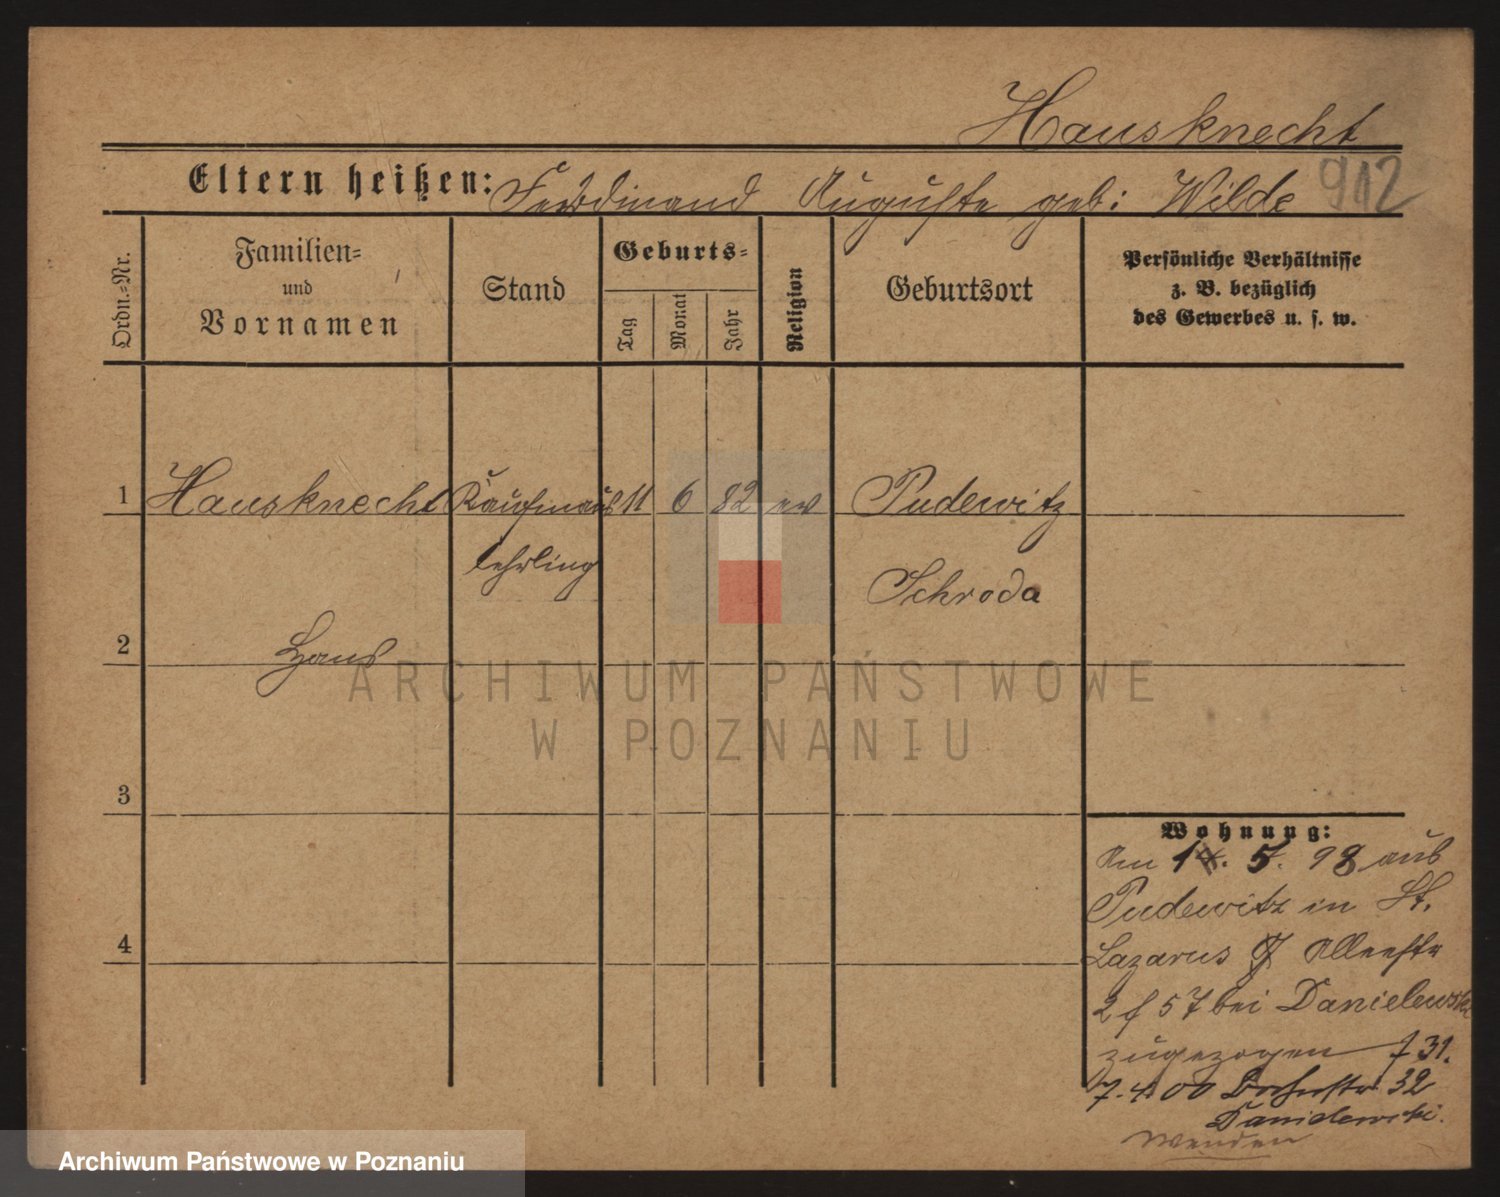 Hausknecht
Eltern heißen: Ferdinand Auguste geb: Wilde 912
Ordn.-Nr.
Familien-
und
Vornamen
Stand
Geburts-
Tag
Monat
Jahr
Religion
Geburtsort
Persönliche Verhältnisse
z. B. bezüglich
des Gewerbes u. s. w.
1 Hausknecht Kaufmans 11 6 82 ev Pudewitz
lehrling
Schroda
2 Hans
3
4
Wohnung:
Am 5. 98 aus
Pudewitz in St.
Lazarus Alleestr
2 f 57 bei Danielewski
zugezogen f 31.
7.4 00 32
Danielewski.
Wenden
ARCHIWUM PAŃSTWOWE
W POZNANIU
Archiwum Państwowe w Poznaniu